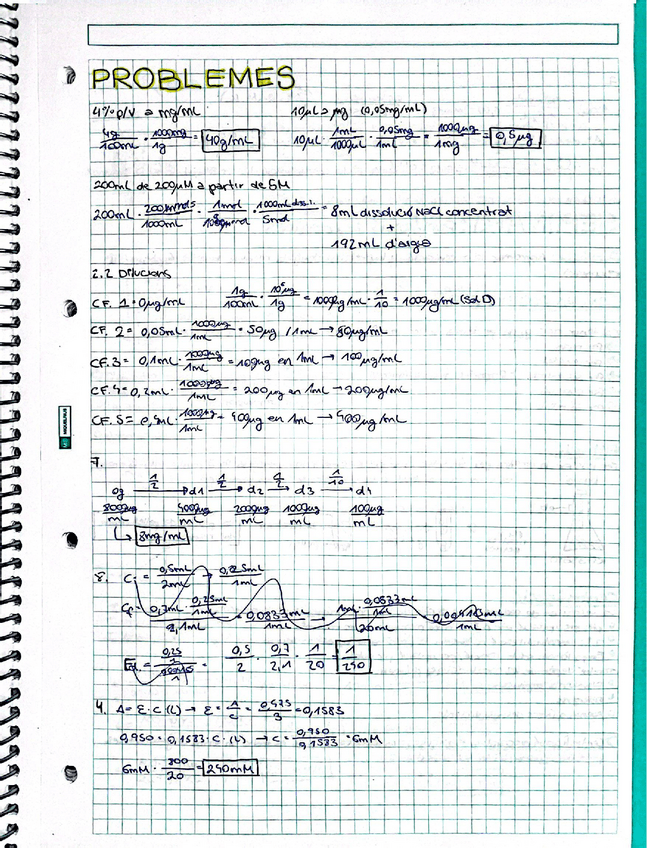 PROBLEMES
4% p/V a mg/mL
4g/100mL · 1000mg/1g = 40g/mL
10µL a µg (0,05mg/mL)
10µL · 1mL/1000µL · 0,05mg/1mL = 1000µg/1mg = 0,5µg
200mL de 200µM a partir de 5M
200mL · 1000mL · 1mol · 1000mL diss. / 5mol = 8mL dissolució NaCl concentrat
+
192mL d'aigua
2.2 Dilucions
CF. 1 = 0µg/mL
1g/100mL · 10⁶µg/1g = 10000µg/mL · 1/10 = 1000µg/mL (Sol D)
CF. 2 = 0,05mL · 1000µg/1mL = 50µg / 1mL → 50µg/mL
CF. 3 = 0,1mL · 1000µg/1mL = 100µg en 1mL → 100µg/mL
CF. 4 = 0,2mL · 1000µg/1mL = 200µg en 1mL → 200µg/mL
CF. 5 = 0,4mL · 1000µg/1mL = 400µg en 1mL → 400µg/mL
MIQUELRIUS
7.
1/2 1/2 1/2 1/10
→ d1 → d2 → d3 → d4
8000µg/mL 4000µg/mL 2000µg/mL 1000µg/mL 100µg/mL
↳ 8mg/mL
8. Ci = 0,5mL/2mL → 0,25mL/1mL
0,3mL · 0,25mL/1mL / 2,1mL = 0,0833mL/1mL → 1mL · 0,0833mL/1mL / 20mL
0,25
0,5/2 · 0,7/2,1 · 1/20 = 1/240
4. A = ε·c·(L) → ε = A/c = 0,475/3 = 0,1583
0,950 = 0,1583·c·(L) → c = 0,950/0,1583 = 6mM
6mM · 800/20 = 240mM